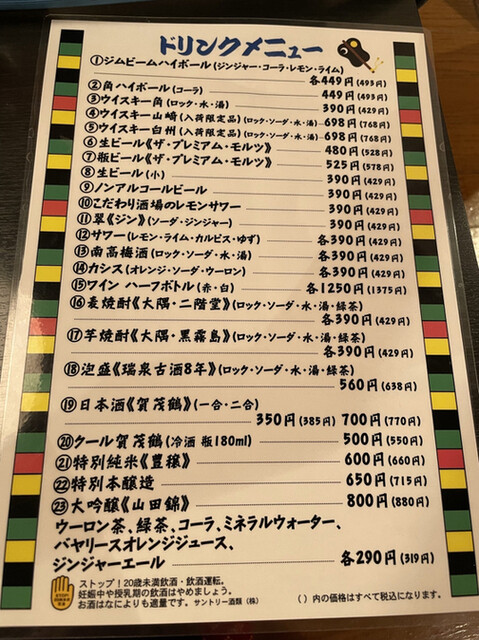 ドリンクメニュー
①ジムビームハイボール(ジンジャー・コーラ・レモン・ライム)
各449円(493円)
②角ハイボール(コーラ) 449円(493円)
③ウイスキー角(ロック・水・湯) 390円(429円)
④ウイスキー山崎(入荷限定品)(ロック・ソーダ・水・湯) 698円(768円)
⑤ウイスキー白州(入荷限定品)(ロック・ソーダ・水・湯) 698円(768円)
⑥生ビール《ザ・プレミアム・モルツ》 480円(528円)
⑦瓶ビール《ザ・プレミアム・モルツ》 525円(578円)
⑧生ビール(小) 390円(429円)
⑨ノンアルコールビール 390円(429円)
⑩こだわり酒場のレモンサワー 390円(429円)
⑪翠《ジン》(ソーダ・ジンジャー) 各390円(429円)
⑫サワー(レモン・ライム・カルピス・ゆず) 各390円(429円)
⑬南高梅酒(ロック・ソーダ・水・湯) 各390円(429円)
⑭カシス(オレンジ・ソーダ・ウーロン) 各390円(429円)
⑮ワイン ハーフボトル(赤・白) 各1250円(1375円)
⑯麦焼酎《大隅・二階堂》(ロック・ソーダ・水・湯・緑茶)
各390円(429円)
⑰芋焼酎《大隅・黒霧島》(ロック・ソーダ・水・湯・緑茶)
各390円(429円)
⑱泡盛《瑞泉古酒8年》(ロック・ソーダ・水・湯・緑茶)
560円(638円)
⑲日本酒《賀茂鶴》(一合・二合)
350円(385円) 700円(770円)
⑳クール賀茂鶴(冷酒 瓶180ml) 500円(550円)
㉑特別純米《豊穣》 600円(660円)
㉒特別本醸造 650円(715円)
㉓大吟醸《山田錦》 800円(880円)
ウーロン茶、緑茶、コーラ、ミネラルウォーター、
バヤリースオレンジジュース、
ジンジャーエール 各290円(319円)
ストップ!20歳未満飲酒・飲酒運転。
妊娠中や授乳期の飲酒はやめましょう。
お酒はなによりも適量です。サントリー酒類(株)
( )内の価格はすべて税込になります。